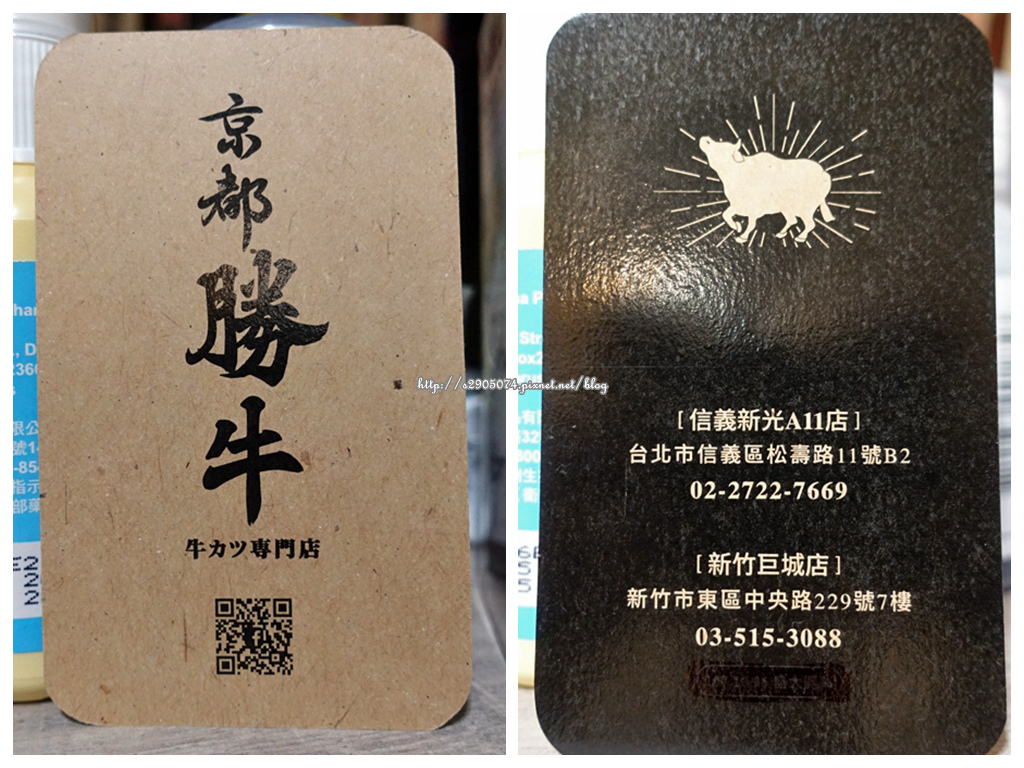 京都勝牛
牛カツ専門店
http://s2905074.pixnet.net/blog
[信義新光A11店]
台北市信義區松壽路11號B2
02-2722-7669
[新竹巨城店]
新竹市東區中央路229號7樓
03-515-3088